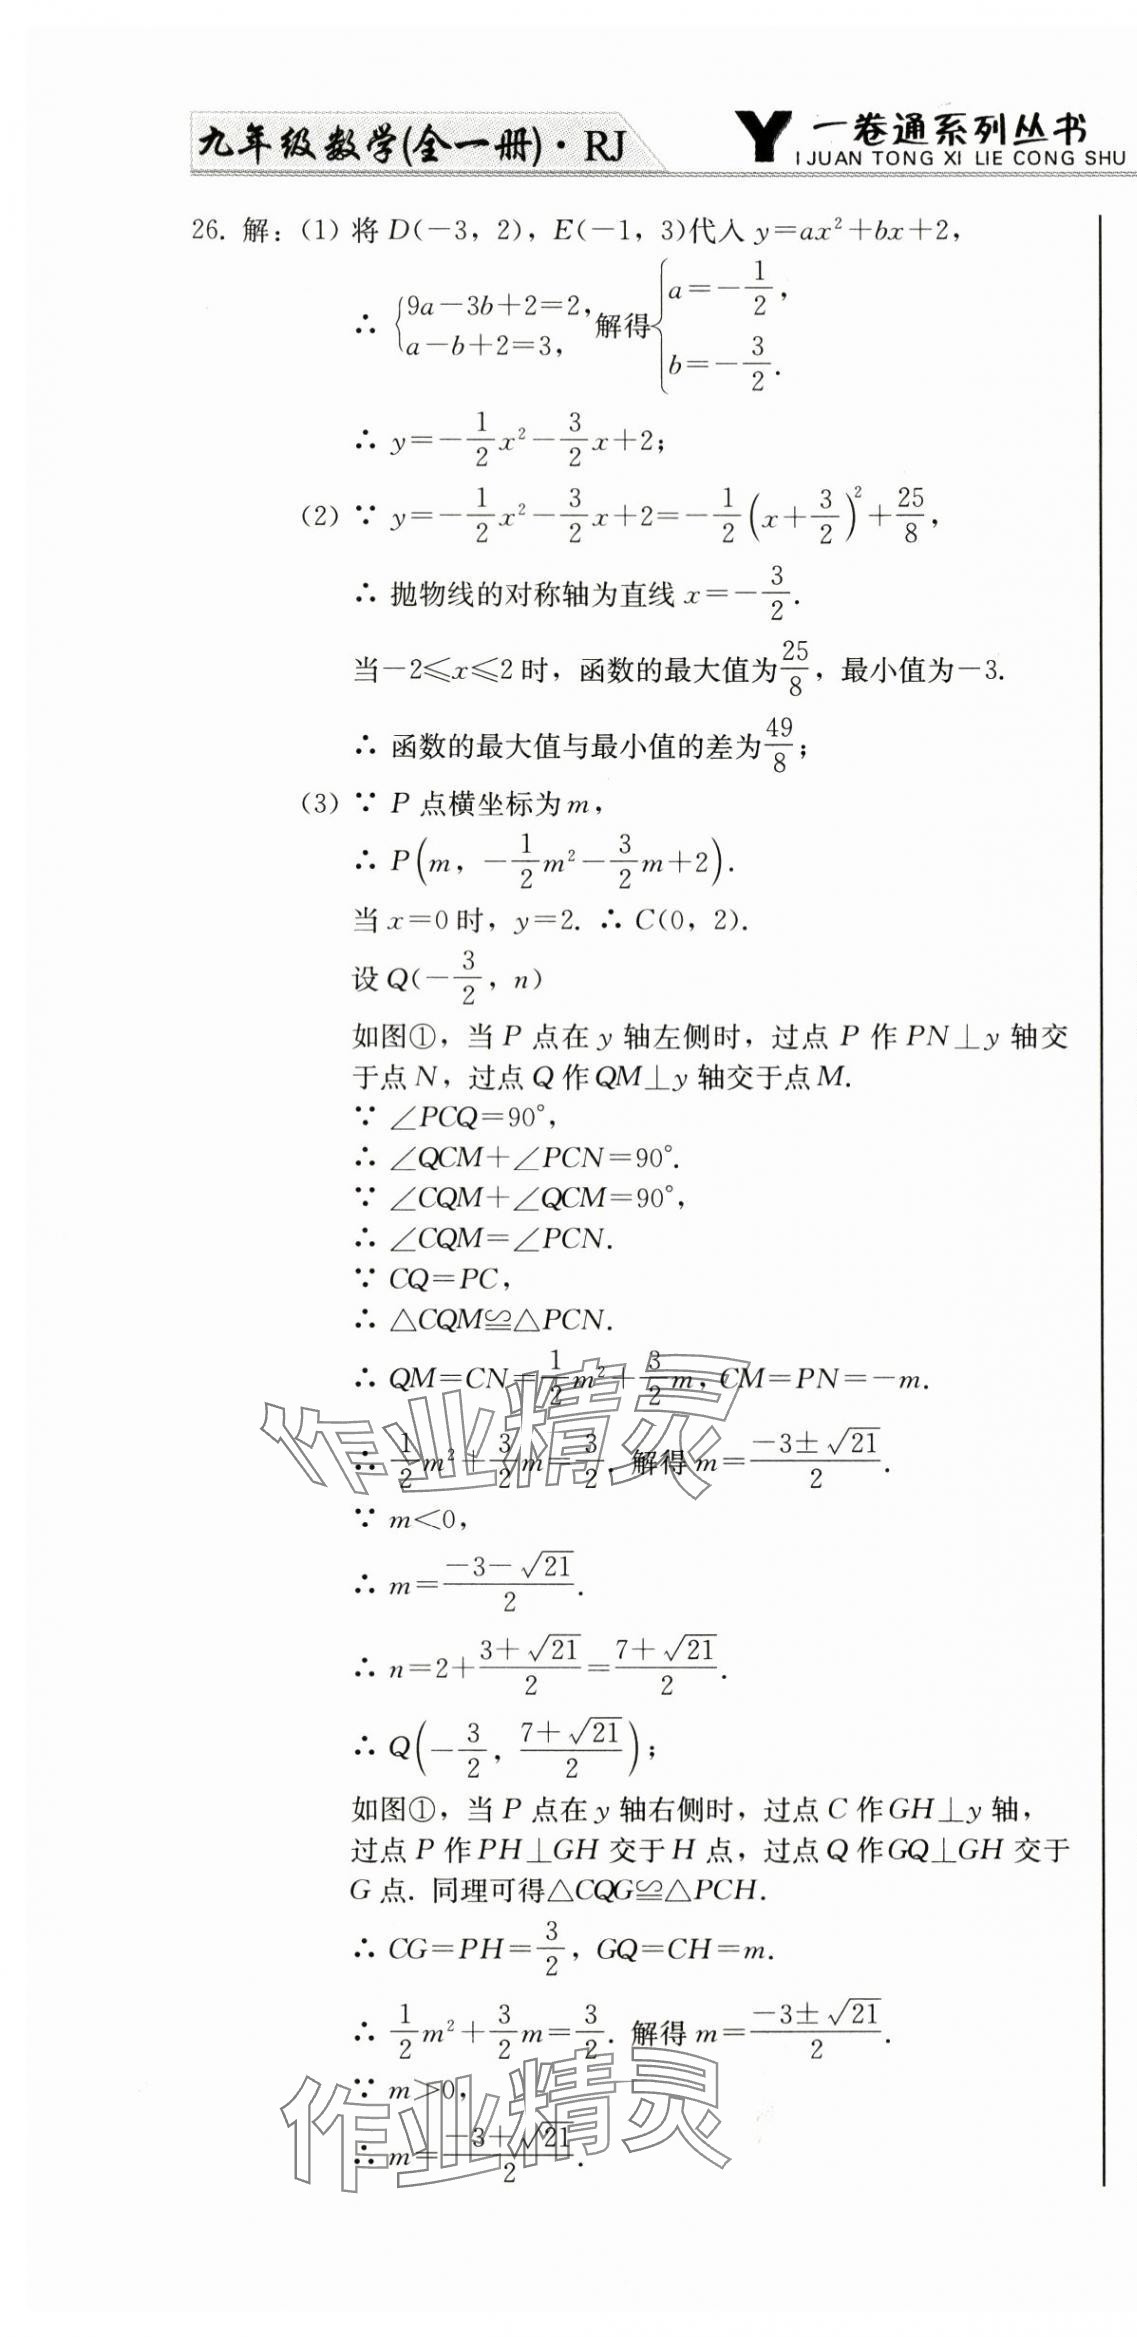 九年级数学(全一册)·RJ
Y 一卷通系列丛书
I JUAN TONG XI LIE CONG SHU
26. 解：(1) 将 D(−3，2)，E(−1，3)代入 y=ax²+bx+2，
∴ {9a−3b+2=2, a−b+2=3, 解得 {a=−1/2, b=−3/2.
∴ y=−1/2x²−3/2x+2；
(2) ∵ y=−1/2x²−3/2x+2=−1/2(x+3/2)²+25/8，
∴ 抛物线的对称轴为直线 x=−3/2.
当−2≤x≤2 时，函数的最大值为25/8，最小值为−3.
∴ 函数的最大值与最小值的差为49/8；
(3) ∵ P 点横坐标为 m，
∴ P(m，−1/2m²−3/2m+2).
当 x=0 时，y=2. ∴ C(0，2).
设 Q(−3/2，n)
如图①，当 P 点在 y 轴左侧时，过点 P 作 PN⊥y 轴交
于点 N，过点 Q 作 QM⊥y 轴交于点 M.
∵ ∠PCQ=90°，
∴ ∠QCM+∠PCN=90°.
∵ ∠CQM+∠QCM=90°，
∴ ∠CQM=∠PCN.
∵ CQ=PC，
∴ △CQM≌△PCN.
∴ QM=CN=1/2m²+3/2m，CM=PN=−m.
∴ 1/2m²+3/2m=3/2. 解得 m=(−3±√21)/2.
∵ m<0，
∴ m=(−3−√21)/2.
∴ n=2+(3+√21)/2=(7+√21)/2.
∴ Q(−3/2，(7+√21)/2)；
如图①，当 P 点在 y 轴右侧时，过点 C 作 GH⊥y 轴，
过点 P 作 PH⊥GH 交于 H 点，过点 Q 作 GQ⊥GH 交于
G 点. 同理可得△CQG≌△PCH.
∴ CG=PH=3/2，GQ=CH=m.
∴ 1/2m²+3/2m=3/2. 解得 m=(−3±√21)/2.
∵ m>0，
∴ m=(−3+√21)/2.
作业精灵
作业精灵